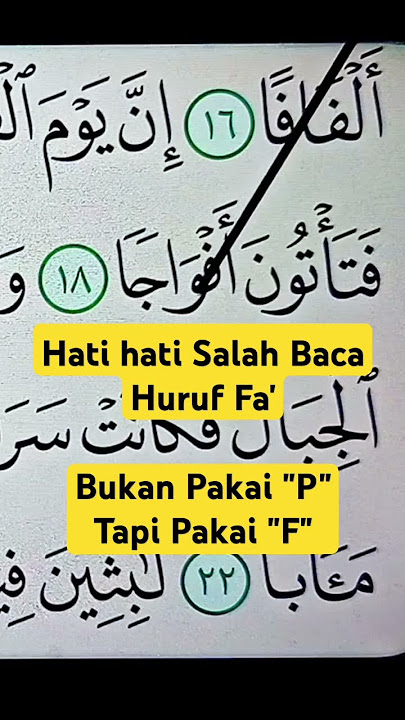 أَلْفَافًا ١٦ إِنَّ يَوْمَ
فَتَأْتُونَ أَفْوَاجًا ١٨ وَ
Hati hati Salah Baca
Huruf Fa'
ٱلْجِبَالُ فَكَانَتْ سَرَ
Bukan Pakai "P"
Tapi Pakai "F"
مَـَٔابًا ٢٢ لَّٰبِثِينَ فِي